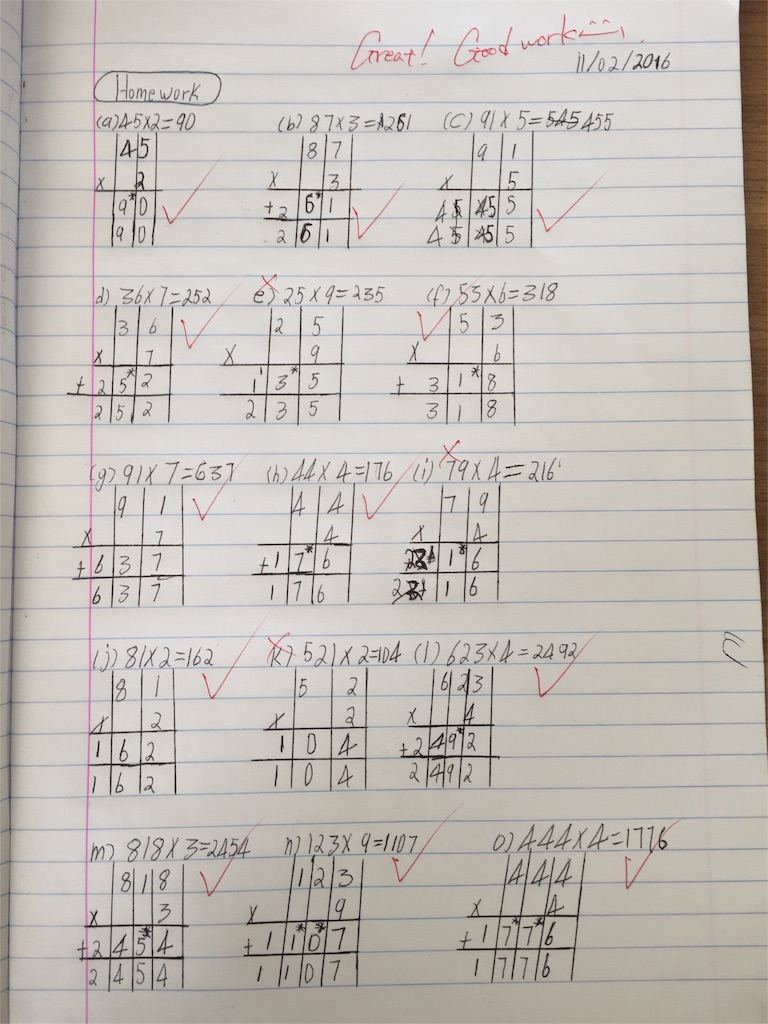 Great! Good work
11/02/2016
Homework
(a) 45x2=90 (b) 87x3=261 (C) 91x5=545 455
4 5 8 7 9 1
x 2 x 3 x 5
9* 0 +2 6* 1 45 5
9 0 2 6 1 45 5
d) 36x7=252 e) 25x9=235 (f) 53x6=318
3 6 2 5 5 3
x 7 x 9 x 6
+ 2 5* 2 1 3* 5 + 3 1* 8
2 5 2 2 3 5 3 1 8
(g) 91x7=637 (h) 44x4=176 (i) 79x4=216
9 1 4 4 7 9
x 7 4 x 4
+ 6 3 7 +1 7* 6 1* 6
6 3 7 1 7 6 2 1 6
(j) 81x2=162 (k) 521x2=104 (l) 623x4=2492
8 1 5 2 6 2 3
x 2 x 2 x 4
1 6 2 1 0 4 +2 4 9* 2
1 6 2 1 0 4 2 4 9 2
m) 818x3=2454 n) 123x9=1107 o) 444x4=1776
8 1 8 1 2 3 4 4 4
x 3 x 9 x 4
+2 4 5* 4 + 1 1* 0* 7 + 1 7* 7* 6
2 4 5 4 1 1 0 7 1 7 7 6